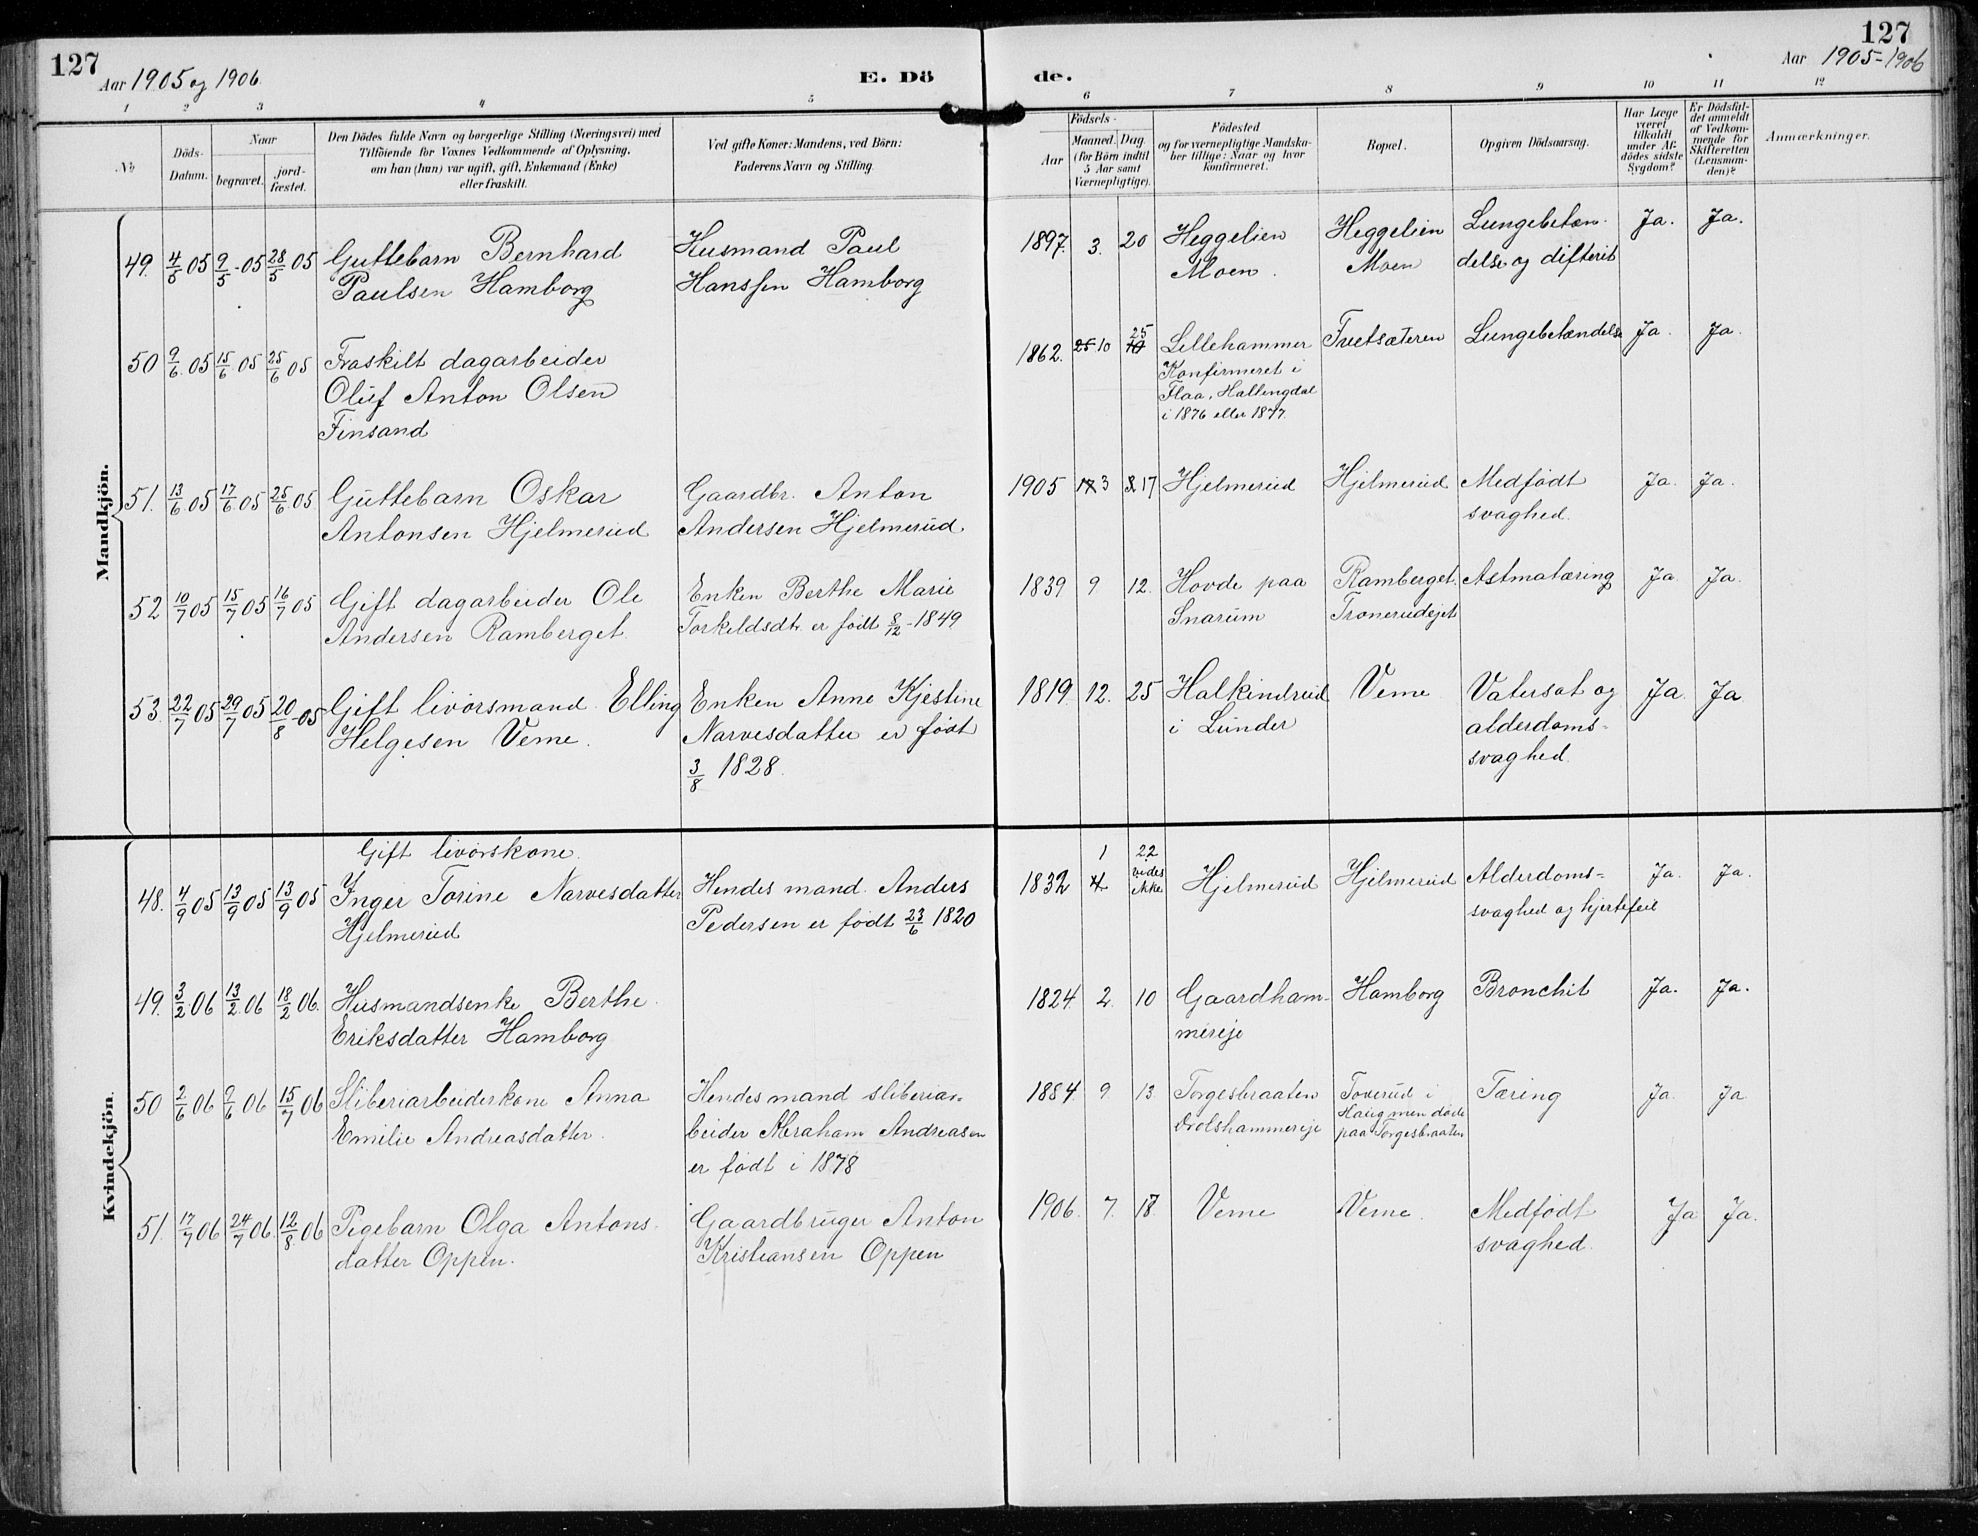 127
Aar 1905 og 1906
E. Dö
de.
127
Aar 1905-1906
1 2 3 4 5 6 7 8 9 10 11 12
No
Döds-
Datum.
Naar
begravet.
jord-
fæstet.
Den Dödes fulde Navn og borgerlige Stilling (Næringsvei) med
Tilföiende for Voxnes Vedkommende af Oplysning,
om han (hun) var ugift, gift, Enkemand (Enke)
eller fraskilt.
Ved gifte Koner: Mandens, ved Börn:
Faderens Navn og Stilling.
Födsels-
Aar
Maaned. Dag.
(for Börn indtil
5 Aar samt
Værnepligtige).
Födested
og for værnepligtige Mandska-
ber tillige: Naar og hvor
konfirmeret.
Bopæl.
Opgiven Dödsaarsag.
Har Læge
været
tilkaldt
under Af-
dödes sidste
Sygdom?
Er Dödsfal-
det anmeldt
af Vedkom-
mende for
Skifteretten
(Lensman-
den)?
Anmærkninger.
Mandkjön.
49. 4/5 05 9/5-05 28/5 05 Guttebarn Bernhard
Paulsen Hamborg
Husmand Paul
Hanssen Hamborg
1897. 3. 20 Heggelien
Moen.
Heggelien
Moen
Lungebetæn-
delse og difterit
Ja. Ja.
50 9/6 05 15/6 05 25/6 05 Fraskilt dagarbeider
Oluf Anton Olsen
Finsand
1862. 25 10 25 10 Lillehammer
Konfirmeret i
Flaa, Hallingdal
i 1876 eller 1877.
Tvetsæteren
Lungebetændelse
Ja. Ja.
51. 13/6 05 17/6 05 25/6 05 Guttebarn Oskar
Antonsen Hjelmerud
Gaardbr. Anton
Andersen Hjelmerud
1905 17 3 3 17 Hjelmerud
Hjelmerud
Medfödt
svaghed.
Ja. Ja.
52 10/7 05 15/7 05 16/7 05 Gift dagarbeider Ole
Andersen Ramberget.
Enken Berthe Marie
Torkeldsdtr. er födt 8/12-1849
1839 9. 12. Hovde paa
Snarum
Ramberget,
Tronerudejet
Astmatæring
Ja. Ja.
53. 22/7 05 29/7 05 20/8-05 Gift livörsmand Elling
Helgesen Veme.
Enken Anne Kjestine
Narvesdatter er födt
3/8 1828.
1819. 12. 25 Halkindrud
i Lunder
Veme
Vatersot og
alderdoms-
svaghed.
Ja. Ja
Kvindekjön.
48. 4/9 05 13/9 05 13/9 05 Gift livörskone.
Inger Torine Narvesdatter
Hjelmerud
Hendes mand Anders
Pedersen er födt 23/6 1820
1832 1 4 22 vides ikke Hjelmerud
Hjelmerud
Alderdoms-
svaghed og hjertefeil
Ja. Ja.
49. 3/2 06 13/2 06 18/2 06. Husmandsenke Berthe
Eriksdatter Hamborg
1824. 2. 10 Gaardham-
mereje
Hamborg
Bronchit
Ja. Ja.
50 2/6 06 9/6 06 15/7 06 Sliberiarbeiderkone Anna
Emilie Andreasdatter.
Hendes mand sliberiar-
beider Abraham Andreasen
er födt i 1878
1884 9. 13. Torgesbraaten
Drolshammereje
Toverud i
Haug men döde
paa Torgesbraaten
Tæring
Ja. Ja
51. 17/7 06 24/7 06. 12/8 06 Pigebarn Olga Antons-
datter Oppen.
Gaardbruger Anton
Kristiansen Oppen
1906. 7. 18. Veme
Veme.
Medfödt
svaghed.
Ja Ja.